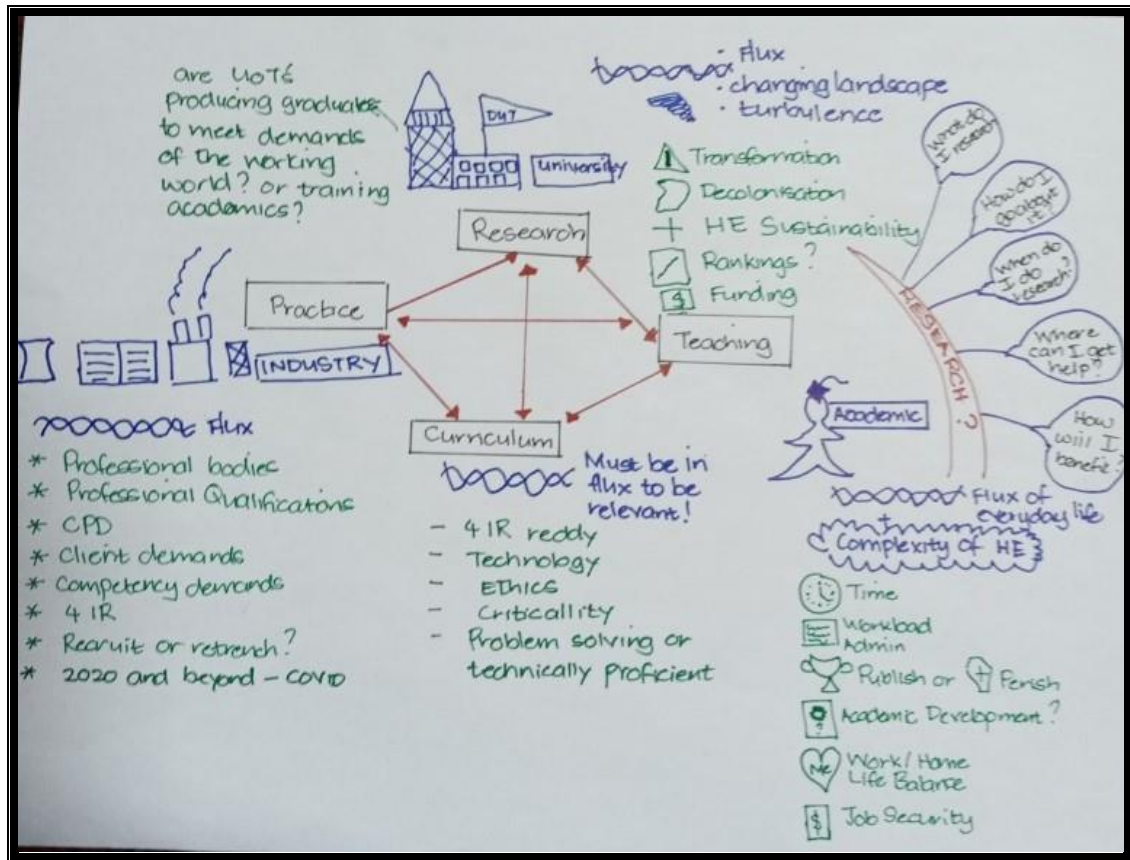 are UOTs
producing graduates
to meet demands
of the working
world? or training
academics?
DUT
university
Flux
· changing landscape
· turbulence
Transformation
Decolonisation
HE Sustainability
Rankings?
Funding
Research
Practice
Teaching
Curriculum
INDUSTRY
Flux
* Professional bodies
* Professional Qualifications
* CPD
* Client demands
* Competency demands
* 4 IR
* Recruit or retrench?
* 2020 and beyond - COVID
Must be in
flux to be
relevant!
- 4 IR reddy
- Technology
- Ethics
- Criticallity
- Problem solving or
technically proficient
RESEARCH?
What do
I research?
How do I
go about
it?
When do
I do
research?
Where
can I get
help?
How
will I
benefit?
Academic
Flux of
everyday life
+
Complexity of HE
Time
Workload
Admin
Publish or Perish
Academic Development?
Me
Work/Home
Life Balance
$
Job Security